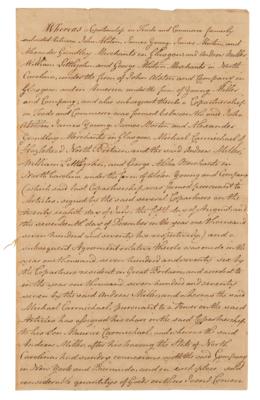 Whereas Copartnership in Trade and Commerce formerly
subsisted between John Alston, James Young, James Alston, and
Alexander Merchants in Glasgow and Andrew Miller
William Littlejohn and George Alston Merchants in North
Carolina, under the firm of John Alston and Company in
Glasgow and in America under the firm of Young, Miller
and Company, and also subsequent thereto a Copartnership
in Trade and Commerce was formed between the said John
Alston, James Young, James Alston and Alexander
Merchants in Glasgow Michael Carmichael of
North Britain and the said Andrew Miller,
William Littlejohn, and George Alston Merchants in
North Carolina under the firm of Alston Young and Company
(which said last Copartnership was formed pursuant to
Articles signed by the said several Copartners on the
twenty eighth day of the day of August and
the seventeenth day of December in the year one thousand
seven hundred and seventy) and a
subsequent Agreement relative thereto was made in the
year one thousand seven hundred and seventy six by
the Copartners resident in Great Britain, and acceded to
in the year one thousand seven hundred and seventy
seven by the said Andrew Miller, and whereas the said
Michael Carmichael, pursuant to a Power in the said
Articles has assigned his share in the said Copartnership
to his son Maurice Carmichael, and whereas the said
Andrew Miller after his leaving the State of North
Carolina had sundry connexions with the said Company
in New York and Bermuda, and in each place sold
considerable quantities of Goods